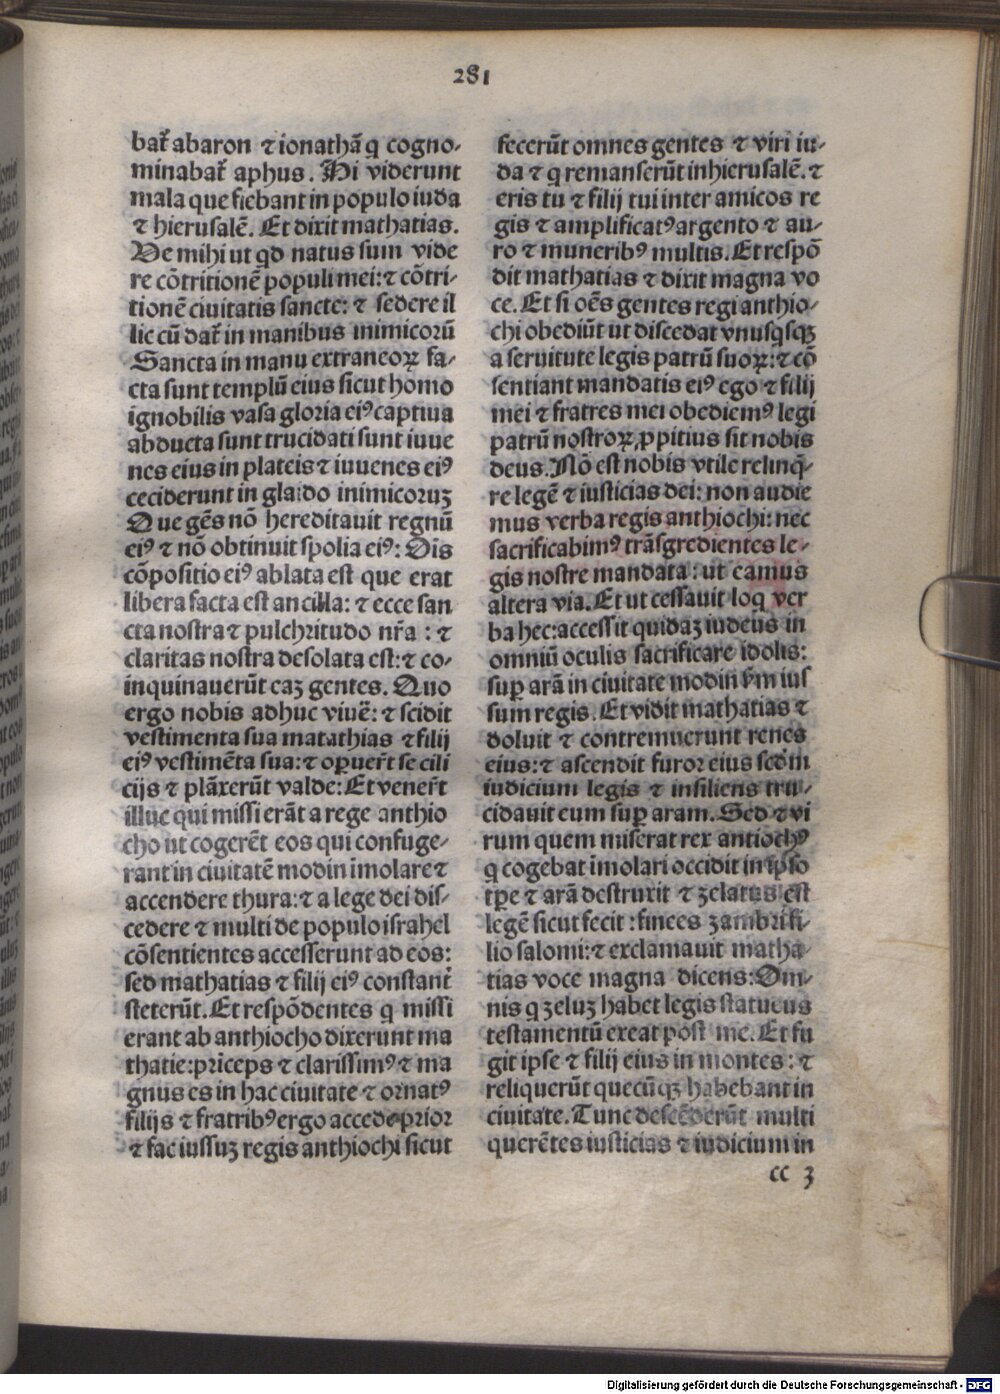 281
bat᷑ abaron ⁊ ionathā q̇ cogno-
minabat᷑ aphus. Hi viderunt
mala que fiebant in populo iuda
⁊ hierusalē. Et dixit mathatias.
Ve mihi ut qd natus sum vide
re cōtritionē populi mei: ⁊ cōtri-
tionē ciuitatis sancte: ⁊ sedere il
lic cū dat᷑ in manibus inimicorū
Sancta in manu extraneoꝝ fa-
cta sunt templū eius sicut homo
ignobilis vasa gloria eiꝰ captiua
abducta sunt trucidati sunt iuue
nes eius in plateis ⁊ iuuenes eiꝰ
ceciderunt in glaido inimicoruꝫ
Que gēs nō hereditauit regnū
eiꝰ ⁊ nō obtinuit spolia eiꝰ: Oīs
cōpositio eiꝰ ablata est que erat
libera facta est ancilla: ⁊ ecce san
cta nostra ⁊ pulchritudo nr̄a : ⁊
claritas nostra desolata est: ⁊ co-
inquinauerūt eaꝫ gentes. Quo
ergo nobis adhuc viuē: ⁊ scidit
vestimenta sua matathias ⁊ filij
eiꝰ vestimēta sua: ⁊ oꝑuer̄t se cili
cijs ⁊ plāxerūt valde: Et vener̄t
illuc qui missi erāt a rege anthio
cho ut cogerēt eos qui confuge-
rant in ciuitatē modin īmolare ⁊
accendere thura: ⁊ a lege dei dis-
cedere ⁊ multi de populo israhel
cōsentientes accesserunt ad eos:
sed mathatias ⁊ filij eiꝰ constant᷑
steterūt. Et respōdentes q̇ missi
erant ab anthiocho dixerunt ma
thatie: prīceps ⁊ clarissimꝰ ⁊ ma
gnus es in hac ciuitate ⁊ ornatꝰ
filijs ⁊ fratribꝰ ergo accede prior
⁊ fac iussuꝫ regis anthiochi sicut
fecerūt omnes gentes ⁊ viri iu-
da ⁊ q̇ remanserūt in hierusalē. ⁊
eris tu ⁊ filij tui inter amicos re
gis ⁊ amplificatꝰ argento ⁊ au-
ro ⁊ muneribꝰ multis. Et respō
dit mathatias ⁊ dixit magna vo
ce. Et si oēs gentes regi anthio-
chi obediūt ut discedat vnusqsqꝫ
a seruitute legis patrū suoꝝ: ⁊ cō
sentiant mandatis eiꝰ ego ⁊ filij
mei ⁊ fratres mei obediemꝰ legi
patrū nostroꝝ, ꝓpitius sit nobis
deus. Nō est nobis vtile relinq̄-
re legē ⁊ iusticias dei: non audie
mus verba regis anthiochi: nec
sacrificabimꝰ trāsgredientes le-
gis nostre mandata: ut eamus
altera via. Et ut cessauit loq̇ ver
ba hec: accessit quidaꝫ iudeus in
omniū oculis sacrificare idolis:
suꝑ arā in ciuitate modin ẜm ius
sum regis. Et vidit mathatias ⁊
doluit ⁊ contremuerunt renes
eius: ⁊ ascendit furor eius scdm
iudicium legis ⁊ insiliens tru-
cidauit eum suꝑ aram. Sed ⁊ vi
rum quem miserat rex antiochꝰ
q̇ cogebat īmolari occidit in ipso
tꝑe ⁊ arā destruxit ⁊ zelatus est
legē sicut fecit : finees zambri fi-
lio salomi: ⁊ exclamauit matha-
tias voce magna dicens: Om-
nis q̇ zeluꝫ habet legis statuens
testamentū exeat post me. Et fu
git ipse ⁊ filij eius in montes: ⁊
reliquerūt quecūqꝫ habebant in
ciuitate. Tunc descēderūt multi
querētes iusticias ⁊ iudicium in
cc 3
Digitalisierung gefördert durch die Deutsche Forschungsgemeinschaft - DFG